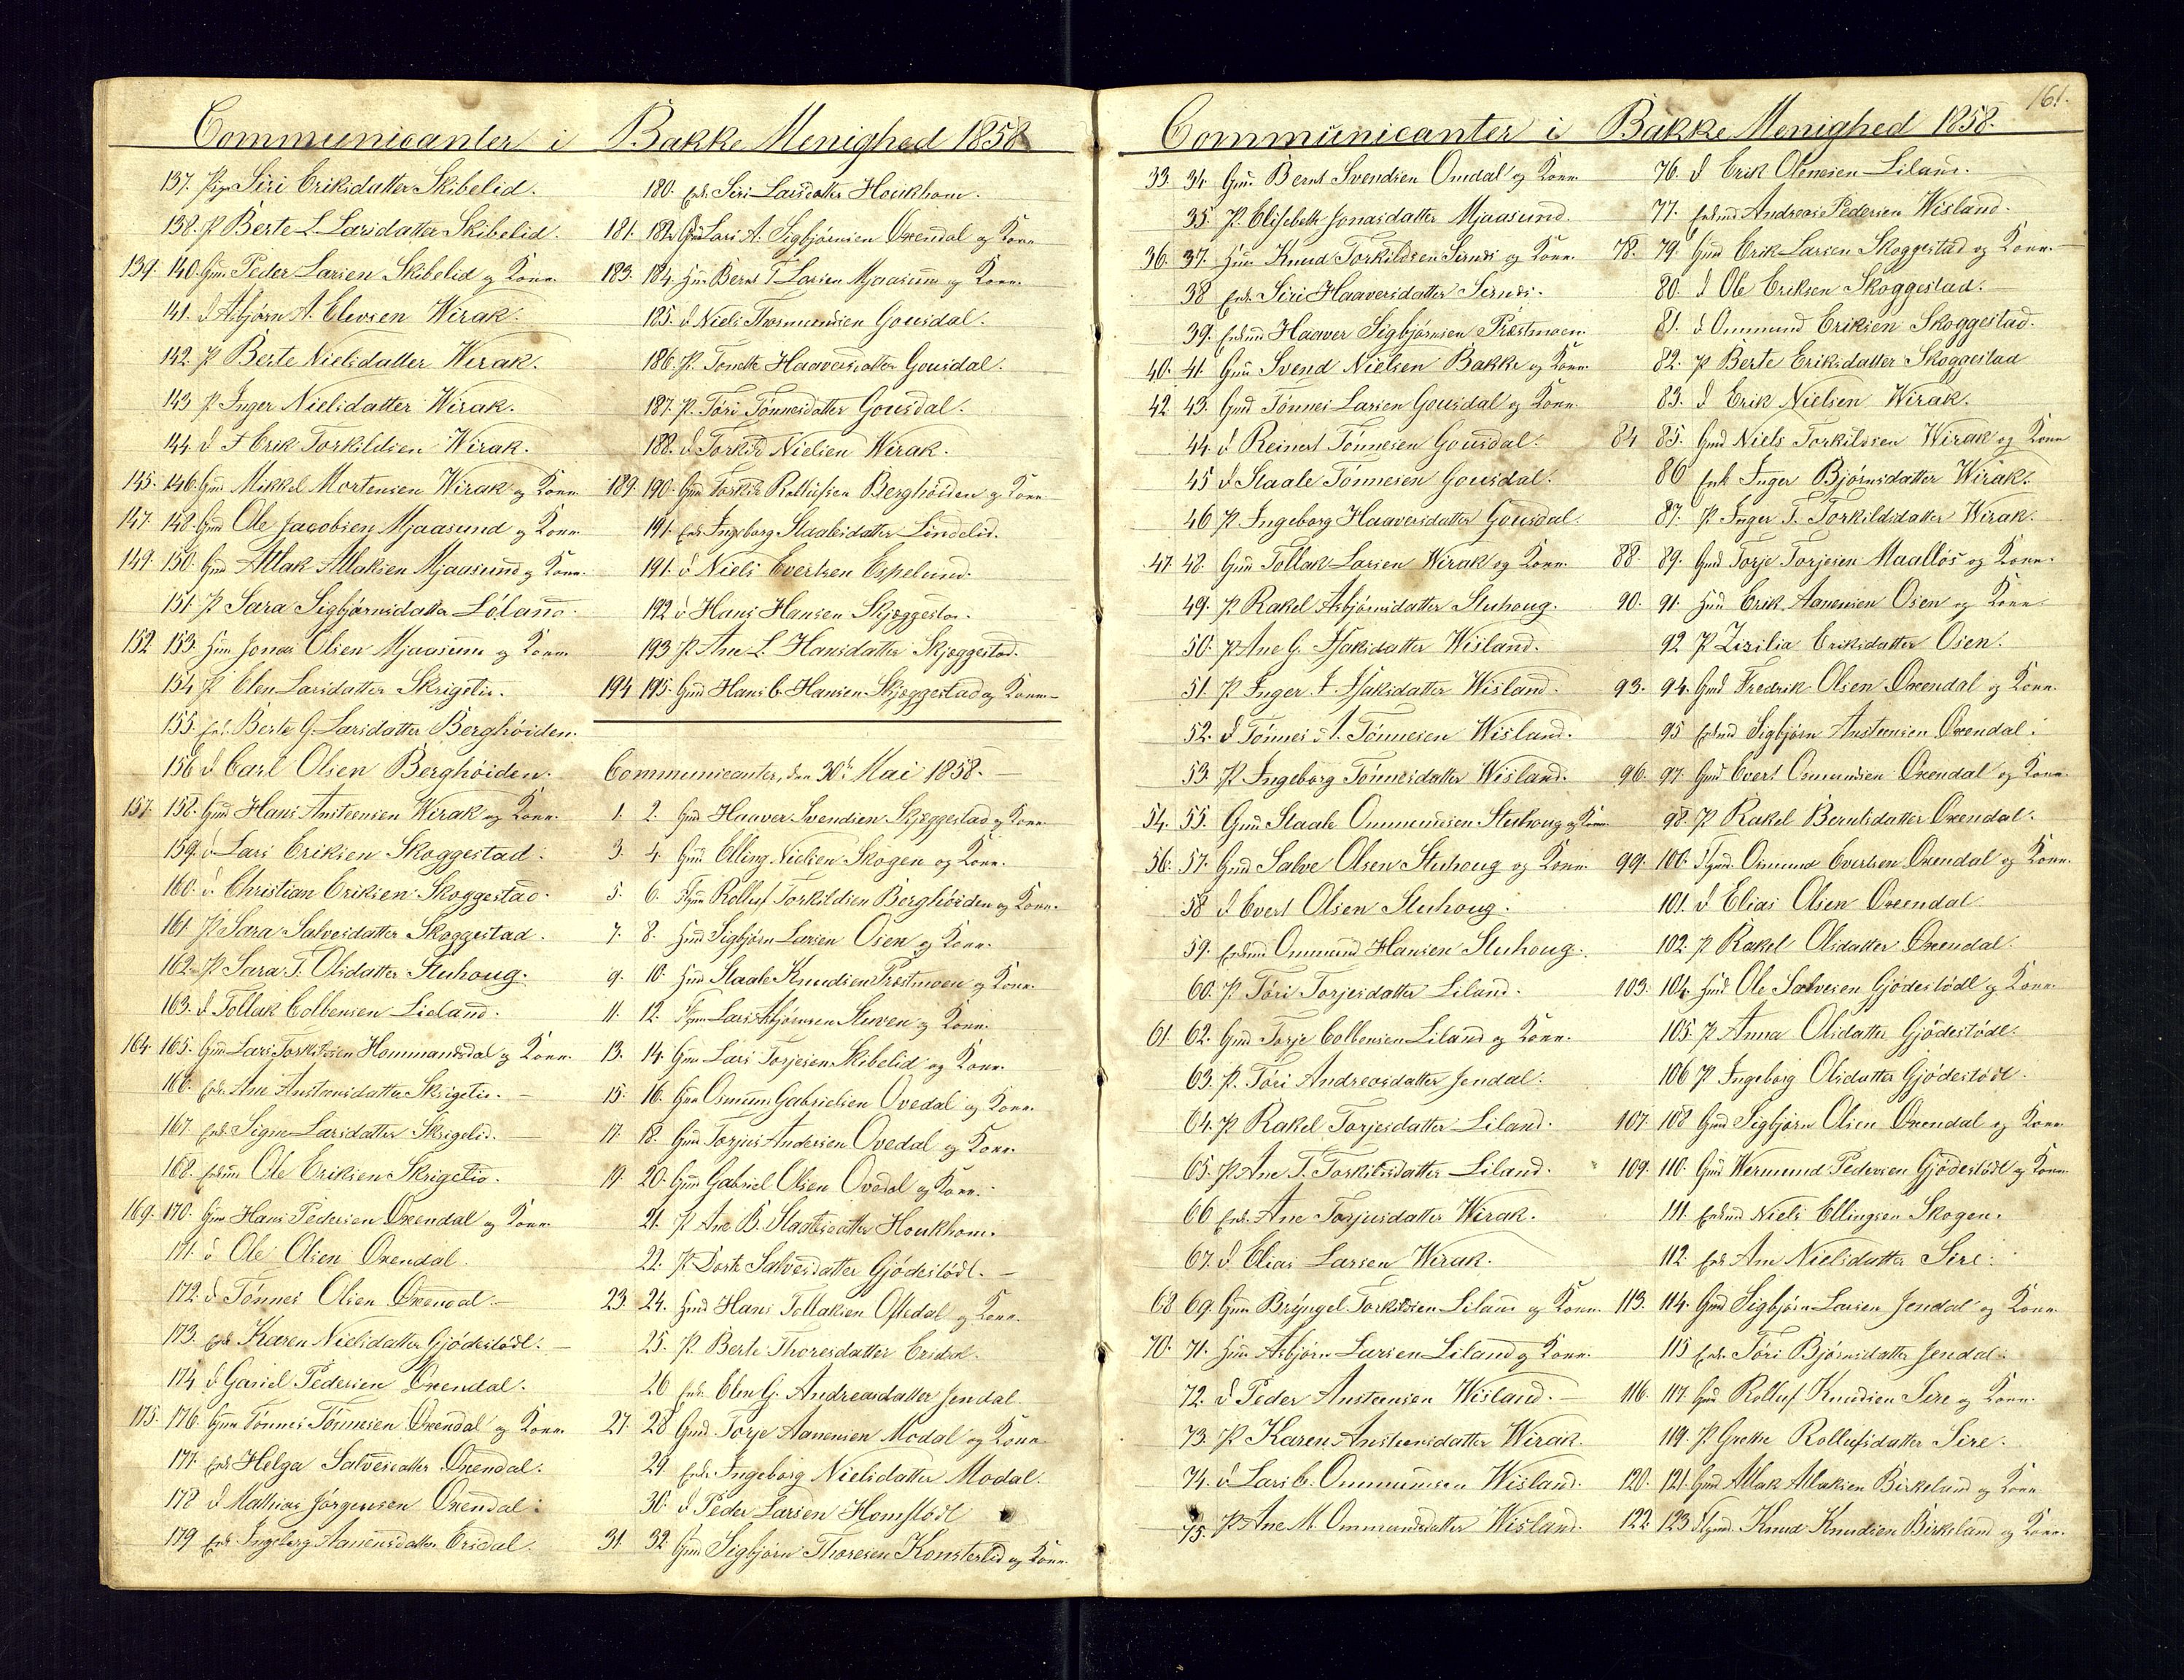 Communicanter i Bakke Menighed 1858
137. Pige Siri Eriksdatter Skibelid.
138. P Berte L. Larsdatter Skibelid.
139. 140. Gmd Peder Larsen Skibelid og Kone.
141. d Asbjørn A. Elevsen Wirak.
142. P Berte Nielsdatter Wirak.
143 P Inger Nielsdatter Wirak.
144. d T Erik Torkildsen Wirak.
145. 146. Gmd Mikkel Mortensen Wirak og Kone.
147. 148. Gmd Ole Jacobsen Mjaasund og Kone.
149. 150. Gmd Atlak Atlaksen Mjaasund og Kone.
151. P Sara Sigbjørnsdatter Löland.
152 153. Hmd Jonas Olsen Mjaasund og Kone.
154 P Elen Larsdatter Skrigelid.
155. Enk. Berte G. Larsdatter Berghöiden.
156 d Carl Olsen Berghöiden.
157. 158. Gmd Hans Anstensen Wirak og Kone.
159. d Lars Eriksen Skoggestad.
160. d. Christian Eriksen Skoggestad.
161. P Sara Salvesdatter Skoggestad.
162. P Sara T. Olsdatter Stuhoug.
163. d Tollak Colbensen Lieland.
164. 165. Gmd Lars Torkildsen Hommandsdal og Kone.
166. Enk. Ane Anstensdatter Skrigelid.
167. Enk. Signe Larsdatter Skrigelid.
168. Enkmd Ole Eriksen Skrigelid.
169. 170. Gmd Hans Pedersen Oxendal og Kone.
171. d Ole Olsen Oxendal.
172. d Tönnes Olsen Oxendal.
173. Enk Karen Nielsdatter Gjödestödl.
174 d Gariel Pedersen Oxendal.
175. 176. Gmd Tönnes Tönnesen Oxendal og Kone.
177. Enk Helga Salvesdatter Oxendal.
178 d Mathias Jörgensen Oxendal.
179. Enk Ingeborg Aanensdatter Eridal.
180. Enk. Siri Larsdatter Houkhom.
181. 182. Gmd Lars A. Sigbjörnsen Oxendal og Kone
183. 184. Hmd Bernt T Larsen Mjaasund og Kone.
185. d Niels Thormundsen Gousdal.
186. P. Tonette Haaversdatter Gousdal.
187. P. Töri Tönnesdatter Gousdal.
188. d Torkild Nielsen Wirak.
189. 190. Gmd Torkild Rollufsen Berghöiden og Kone
191. Enk Ingeborg Staalesdatter Lindelid.
191. d Niels Evertsen Espelund.
192 d Hans Hansen Skjæggestad.
193 P Ane L. Hansdatter Skjæggestad.
194 195. Gmd Hans C. Hansen Skjæggestad og Kone
Communicanter, den 30te Mai 1858.
1. 2. Gmd Haaver Svendsen Skjæggestad og Kone
3. 4. Gmd Elling Nielsen Skogen og Kone.
5. 6. Rolluf Torkildsen Berghöiden og Kone.
7. 8. Hmd Sigbjørn Larsen Osen og Kone.
9. 10. Hmd Staale Knudsen Præstmoen og Kone.
11. 12. Lars Asbjörnsen Stuven og Kone.
13. 14. Gmd Lars Torjesen Skibelid og Kone.
15. 16. Gmd Osmund Gabrielsen Ovedal og Kone.
17. 18. Gmd Torjus Andersen Ovedal og Kone.
19. 20. Gmd Gabriel Olsen Ovedal og Kone.
21. P Ane B. Staalesdatter Houkhom.
22. P Dorte Salvesdatter Gjödestödl.
23. 24. Hmd Hans Tollaksen Oftedal og Kone.
25. P. Berte Thoresdatter Eridal.
26 Enk. Elen G. Andreasdatter Jendal
27. 28 Gmd Torje Aanensen Modal og Kone
29. Enk. Ingeborg Nielsdatter Modal.
30. d Peder Larsen Homstödl
31. 32. Gmd Sigbjørn Thoresen Konsterlid og Kone.
161.
Communicanter i Bakke Menighed 1858.
33. 34. Gmd Bernt Svendsen Omdal og Kone.
35. P. Elisebeth Jonasdatter Mjaasund.
36. 37. Hmd Knud Torkildsen Sirnes og Kone.
38 Enk. Siri Haaversdatter Sirnes.
39. Enkmd Haaver Sigbjørnsen Præstmoen.
40. 41. Gmd Svend Nielsen Bakke og Kone.
42. 43. Gmd Tönnes Larsen Gousdal og Kone.
44. d Reinert Tönnesen Gousdal.
45 d Staale Tönnesen Gousdal.
46 P Ingeborg Haaversdatter Gousdal.
47. 48. Gmd Tollak Larsen Wirak og Kone.
49. P Rakel Asbjørnsdatter Stuhoug.
50. P Ane G. Isaksdatter Wisland.
51. P Inger T. Isaksdatter Wisland.
52. d Tönnes A. Tönnesen Wisland.
53 P Ingeborg Tönnesdatter Wisland.
54. 55. Gmd Staale Ommundsen Stuhoug og Kone
56. 57. Gmd Salve Olsen Stuhoug og Kone.
58 d Evert Olsen Stuhoug.
59. Enkmd Ommund Hansen Stuhoug.
60. P Töri Torjesdatter Liland.
61. 62. Gmd Torje Colbensen Liland og Kone.
63. P. Töri Andreasdatter Jendal.
64. P Rakel Torjesdatter Liland.
65. P Ane T. Torkildsdatter Liland.
66 Enk. Ane Torjusdatter Wirak.
67. d Elias Larsen Wirak.
68 69. Gmd Bryngel Torkildsen Liland og Kone.
70. 71. Hmd Asbjørn Larsen Liland og Kone.
72. d Peder Anstensen Wisland.
73. P Karen Anstensdatter Wirak.
74. d Lars C. Ommundsen Wisland.
75. P Ane M. Ommundsdatter Wisland.
76. d Erik Olenesen Liland.
77. Enkmd Andreas Pedersen Wisland.
78. 79. Gmd Erik Larsen Skoggestad og Kone.
80. d Ole Eriksen Skoggestad.
81. d Ommund Eriksen Skoggestad.
82. P Berte Eriksdatter Skoggestad
83. d Erik Nielsen Wirak.
84 85. Gmd Niels Torkildsen Wirak og Kone
86 Enk Inger Bjørnsdatter Wirak.
87. P. Inger T. Torkildsdatter Wirak.
88. 89. Gmd Torje Torjesen Maalløs og Kone.
90. 91. Hmd Erik Aanensen Osen og Kone
92 P Zisilia Eriksdatter Osen.
93. 94. Gmd Fredrik Olsen Oxendal og Kone.
95 Enkmd Sigbjørn Anstensen Oxendal.
96. 97. Gmd Evert Osmundsen Oxendal og Kone.
98. P Rakel Berntsdatter Oxendal.
99. 100. Osmund Evertsen Oxendal og Kone.
101. d Elias Olsen Oxendal
102. P Rakel Olsdatter Oxendal.
103. 104. Hmd Ole Salvesen Gjödestödl og Kone.
105. P Anna Olsdatter Gjödestödl.
106 P Ingeborg Olsdatter Gjödestödl.
107. 108 Gmd Sigbjørn Olsen Oxendal og Kone
109. 110. Gmd Wermund Pedersen Gjödestödl og Kone
111. Enkmd Niels Ellingsen Skogen.
112. Enk Ane Nielsdatter Sire.
113. 114. Gmd Sigbjørn Larsen Jendal og Kone.
115 Enk. Töri Bjørnsdatter Jendal.
116. 117. Gmd Rolluf Knudsen Sire og Kone.
119. P. Grethe Rollufsdatter Sire.
120. 121. Gmd Atlak Atlaksen Birkeland og Kone
122. 123 Knud Knudsen Birkeland og Kone.